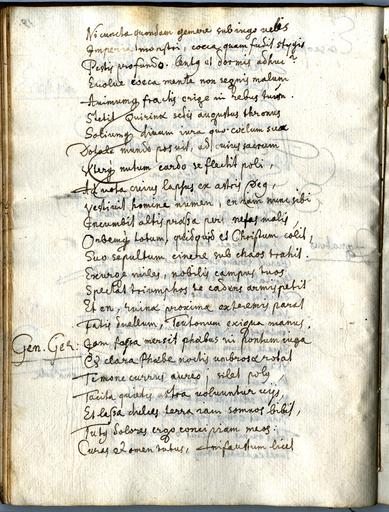 Ni cuncta quondam gemere sub iugo velis
Imperia monstri, coeca quam fudit stygis
Pestis profundo. Lenta et dormis adhuc?
Evolve coeca mente non segnis malum
Animumque fractis erige in rebus tuum.
Stetit Quirinae sedis augustus thronus
Solium divum iura quo coelum sua
mundo posuit, ad cuius sacrum
nutum cardo se flectit poli,
Ad vota cuius lapsus ex astris Deus,
vestivit homine numen, en iam nunc sibi
Incumbit altis pressa peri nefas malis,
Orbemque totum, quidquid et Christum colit,
Suo sepultum cinere sub chaos trahit.
Exurge miles, nobilis campus tuos
Spectet triumphos te cadens armis petit
Et en, ruinae proxima extremis parat
Fatis duellum, Teutonum exigua manus,
Gen. Ger: Iam fessa mersit phoebus in pontum iuga
Et clara Phoebe noctis umbrosae rotat
Temone currus aureo, silet polus
Tacita quietis astra volvuntur viis,
Et lassa dulces terra iam somnos bibit,
Tutus dolores ergo concipiam meos.
Curas et omen totus, infaustum licet